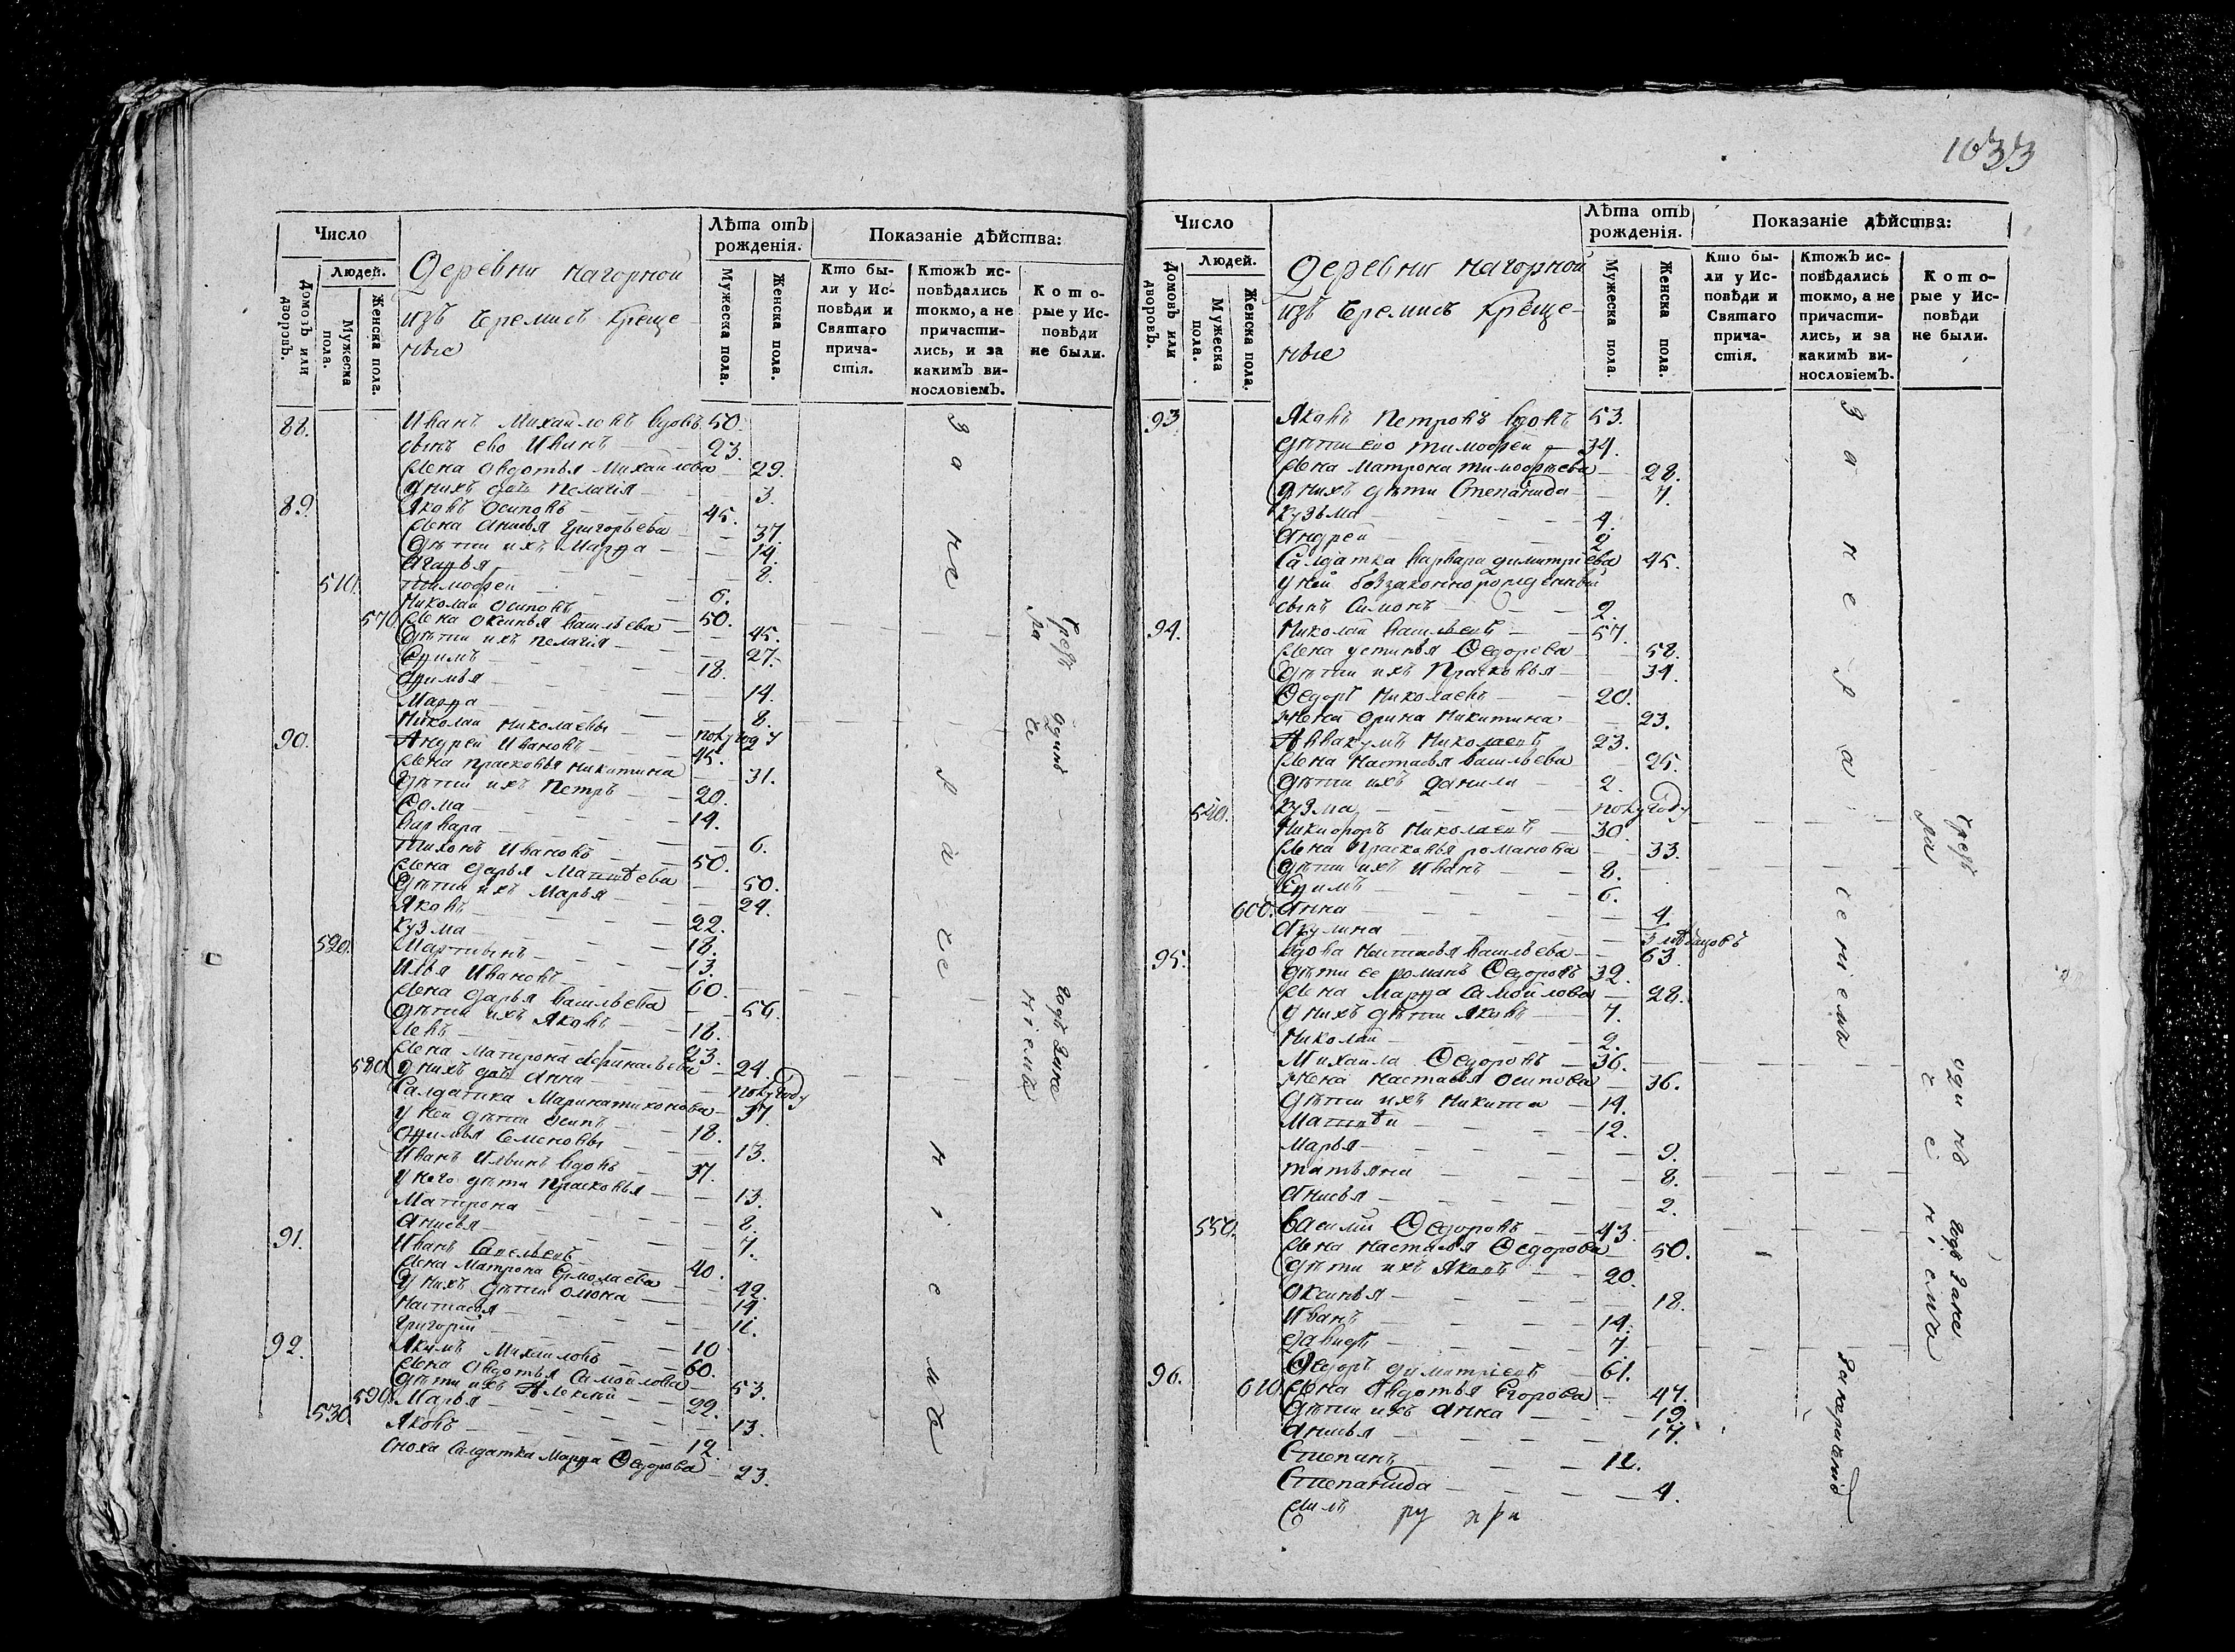 Число
Людей.
Домовъ или дворовъ.
Мужеска пола.
Женска пола.
Деревни нагорной
изъ черемисъ креще-
ные
Лѣта отъ рожденія.
Мужеска пола.
Женска пола.
Показаніе дѣйства:
Кто бы-
ли у Ис-
повѣди и
Святаго
прича-
стія.
Ктожъ ис-
повѣдались
токмо, а не
причасти-
лись, и за
какимъ ви-
нословіемъ.
Кото-
рые у Ис-
повѣди
не были.
88. Иванъ Михайловъ вдовъ 50.
сынъ ево Иванъ 23.
Жена Овдотья Михайлова 29.
У нихъ дочь Пелагія 3.
89. Яковъ Осиповъ 45.
Жена Анисья Григорьева 37.
Дѣти ихъ Марфа 14.
Агафья 8.
510. Тимофей 6.
Николай Осиповъ 50.
570. Жена Оксинья Васильева 45.
Дѣти ихъ Пелагія 27.
Ефимъ 18.
Афимья 14.
Марфа 8.
Николай Николаевы полугоду
90. Андрей Ивановъ 45.
Жена Прасковья Никитина 31.
Дѣти ихъ Петръ 20.
Фома 14.
Варвара 6.
Тихонъ Ивановъ 50.
Жена Дарья Матвѣева 50.
Дѣти ихъ Марья 24.
Яковъ 22.
Кузма 18.
520. Мартынъ 13.
Илья Ивановъ 60.
Жена Дарья Васильева 56.
Дѣти ихъ Яковъ 18.
23.
Жена Матрона 24.
580. У нихъ дочь Анна полугоду
Салдатка Марина Тихонова 37.
У ней дѣти Осипъ 18.
Афимья Семеновы 13.
Иванъ Ильинъ вдовъ 37.
У него дѣти Прасковья 13.
Матрона 8.
Анисья 7.
91. Иванъ Савельевъ 40.
Жена Матрона Ермолаева 42.
У нихъ дѣти 14.
Настасья 11.
Григорій 10.
92. Якимъ Михайловъ 60.
Жена Овдотья Самойлова 53.
Дѣти ихъ Алексѣй 22.
590. Марья 13.
530. Яковъ 12.
Сноха Салдатка Марфа Федорова 23.
За не раче ніемъ
Чрезъ одинъ годъ за не
ра че ніемъ
1033
Число
Людей.
Домовъ или дворовъ.
Мужеска пола.
Женска пола.
Деревни нагорной
изъ черемисъ креще-
ные
Лѣта отъ рожденія.
Мужеска пола.
Женска пола.
Показаніе дѣйства:
Кто бы-
ли у Ис-
повѣди и
Святаго
прича-
стія.
Ктожъ ис-
повѣдались
токмо, а не
причасти-
лись, и за
какимъ ви-
нословіемъ.
Кото-
рые у Ис-
повѣди
не были.
93. Яковъ Петровъ вдовъ 53.
дѣти ево Тимофей 34.
Жена Матрона Тимофѣева 28.
У нихъ дѣти Степанида 7.
Кузьма 4.
Андрей 2.
Салдатка Варвара Димитріева 45.
у ней беззаконнорожденный
сынъ Симонъ 2.
94. Николай Васильевъ 57.
Жена Устинья Федорова 58.
Дѣти ихъ Прасковья 34.
Федоръ Николаевъ 20.
Жена Орина Никитина 23.
Аввакумъ Николаевъ 23.
Жена Настасья Васильева 25.
Дѣти ихъ Данила 2.
540. Кузма полугоду
Никифоръ Николаевъ 30.
Жена Прасковья Романова 33.
Дѣти ихъ Иванъ 8.
Ефимъ 6.
600. Анна 4.
Акулина 3 мѣсяцовъ
95. Вдова Настасья Васильева 63.
Дѣти ее Романъ Федоровъ 32.
Жена Марфа Самойлова 28.
У нихъ дѣти Яковъ 7.
Николай 2.
Михайла Федоровъ 36.
Жена Настасья Осипова 36.
Дѣти ихъ Никита 14.
Матвѣй 12.
Марья 9.
Татьяна 8.
Анисья 2.
550. Василій Федоровъ 43.
Жена Настасья Федорова 50.
Дѣти ихъ Яковъ 20.
Оксинья 18.
Иванъ 14.
Давидъ 7.
96. Федоръ Димитріевъ 61.
610. Жена Овдотья Егорова 47.
Дѣти ихъ Анна 19.
Анисья 17.
Степанъ 11.
Степанида 4.
За не ра ченіемъ
Чрезъ одинъ годъ за не
ра че ніемъ